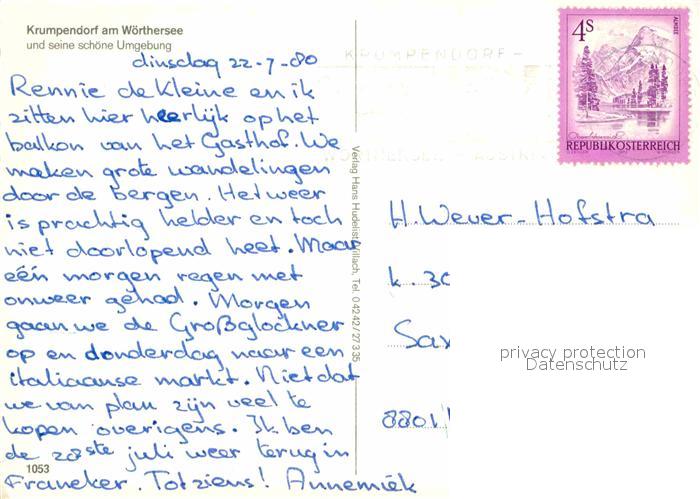 Krumpendorf am Wörthersee
und seine schöne Umgebung
dinsdag 22-7-80
Rennie de Kleine en ik
zitten hier heerlijk op het
balkon van het Gasthof. We
maken grote wandelingen
door de bergen. Het weer
is prachtig helder en toch
niet doorlopend heet. Maar
eén morgen regen met
onweer gehad. Morgen
gaan we de Großglockner
op en donderdag naar een
italiaanse markt. Niet dat
we van plan zijn veel te
kopen overigens. Ik ben
de 28ste juli weer terug in
Franeker. Tot ziens! Annemiek
1053
Verlag Hans Hudelist, Villach, Tel. 04242/27335
KRUMPENDORF-
4S
ALMSEE
REPUBLIK ÖSTERREICH
H. Wever-Hofstra
k. 30
Sax
8801
privacy protection
Datenschutz